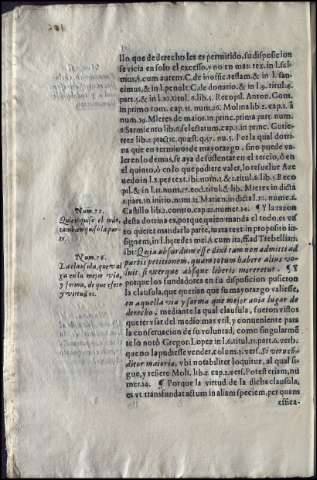 llo que de derecho les es permitido, su disposicion
se vicia en solo el excesso, y no en mas. tex. in l. san-
cimus, §. cum autem. C. de inoffic. testam. & in l. san-
cimus, & in l. penult. C. de donatio. & in l. 9. titul. 4.
part. 5. & in l. 10. titul. 4. lib. 5. Recopil. Anton. Gom.
in primo tom. cap. 11. num. 26. Molina lib. 2. cap. 2. á
num. 19. Mieres de maior. in princ. prima part. num.
Sarmiento lib. 6. selectarum. cap. 3. in princ. Gutie-
rrez lib. 2. practic. quæst. 57. nu. 5. Por la qual dotri
na que en termino de mayorazgo, sino puede va-
ler en lo demàs, se aya de sustentar en el tercio, ò en
el quinto, ò en lo que podiere valer, lo resuelue Aze
uedo in l.
pil. & in l. 11. num. 17. eod. titul. & lib. Mieres in dicta
4. part. in initio. num. 21. Matien. in dicta l. 11. num.
Castillo lib. 2. contro. cap. 22. numer. 24. ¶ Y la razon
desta dotrina es, porque quien manda el todo, es vis
to querer mandar la parte, ita ex text. in proposito in-
signem, in l. heredes mei, §. cum ita, ff. ad Trebellian.
ibi: Quia absurdum esse dicit tam non admitti ad
partis petitionem, quam totum habere alius vo-
luit, si vterque absque liberis moreretur. ¶ Y
porque los fundadores en su disposicion pusieron
la clausula, que querian que su mayorazgo valiesse,
en aquella via y forma que mejor auia lugar de
derecho, mediante la qual clausula, fueron vistos
querer vsar del medio mas vtil, y conueniente para
la conseruacion de su voluntad, como singularmẽ
te lo notò Gregor. Lopez in l. 6. titul. 11. part. 6. verb.
que no la pudiesse vender, colum. 2. vers. Si vero cõ
ditor maioria, vbi notabiliter loquitur, al qual si-
gue, y refiere Moli. lib. 2. cap. 2. vers. Potest etiam, nu
mer. 14. ¶ Porque la virtud de la dicha clausula,
es vt transfundat actum in aliam speciem, per quam
effica-
Num. 75.
Quien quiso el mas,
tambien quiso la par-
te.
Num. 76.
La clausula, que val
ga en la mejor via,
y forma, de que efeto
y virtud es.